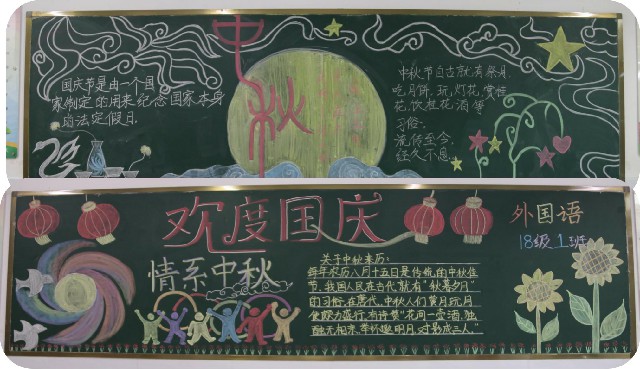 中秋
国庆节是由一个国
家制定的用来纪念国家本身
的法定假日
中秋节自古就有祭月、
吃月饼、玩灯花、赏桂
花、饮桂花酒等
习俗
流传至今
经久不息
欢度国庆
情系中秋
外国语
18级1班
关于中秋来历:
每年农历八月十五日是传统的中秋佳
节。我国人民在古代就有"秋暮夕月"
的习俗。在唐代,中秋人们赏月、玩月
使颇为盛行。有诗赞"花间一壶酒,独
酌无相亲。举杯邀明月,对影成三人。"